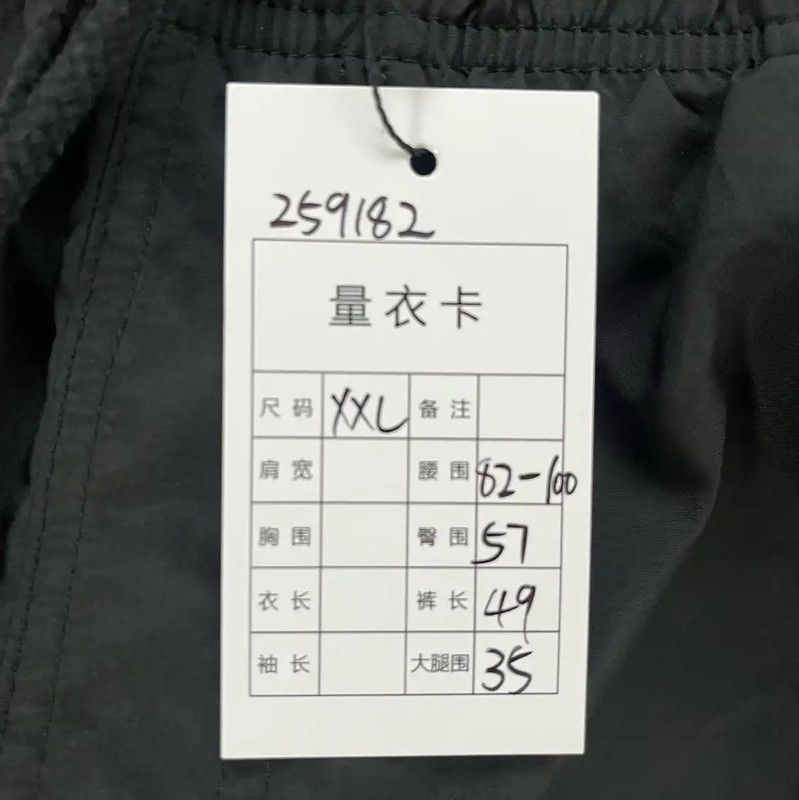 259182
量衣卡
尺码 XXL 备注
肩宽 腰围 82-100
胸围 臀围 57
衣长 裤长 49
袖长 大腿围 35